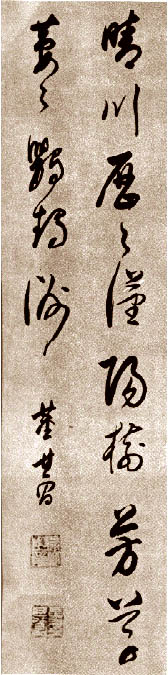 晴川歷〻漢陽樹芳草
萋〻鸚鵡洲 董其昌